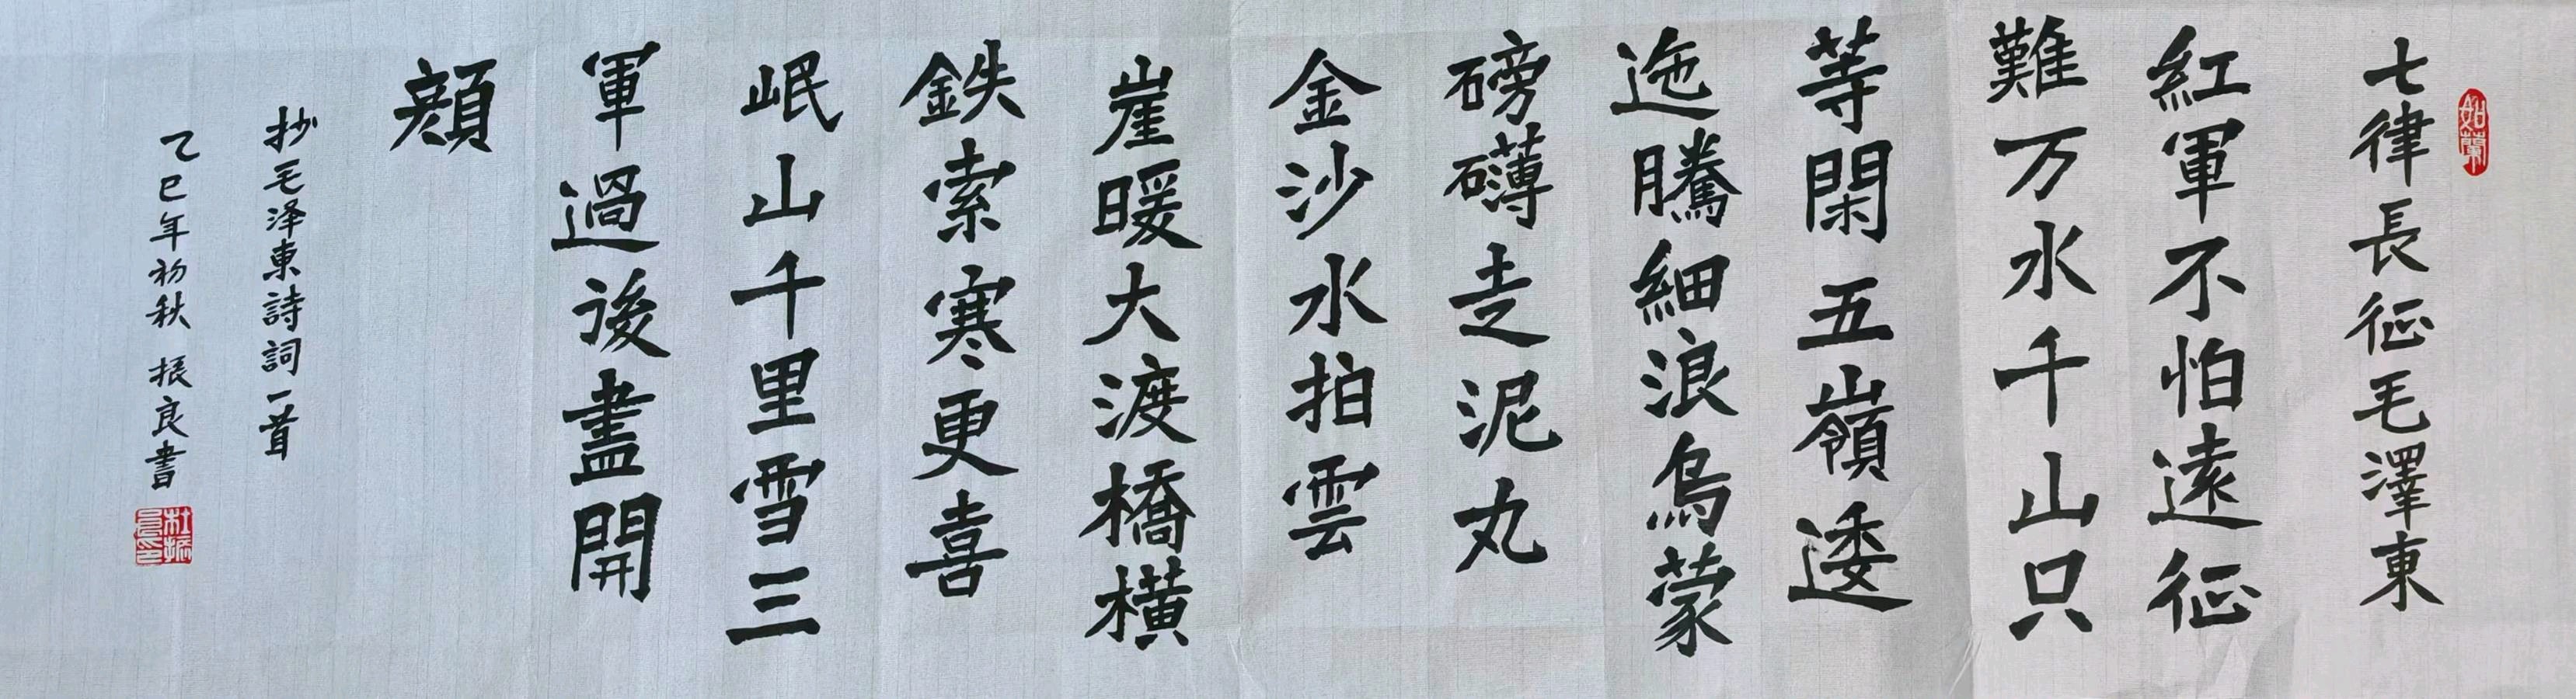 如蘭
七律長征毛澤東
紅軍不怕遠征
難万水千山只
等閑五嶺逶
迤騰細浪烏蒙
磅礴走泥丸
金沙水拍雲
崖暖大渡橋横
鉄索寒更喜
岷山千里雪三
軍過後盡開
顔
抄毛泽東詩詞一首
乙巳年初秋 振良書
杜振良印